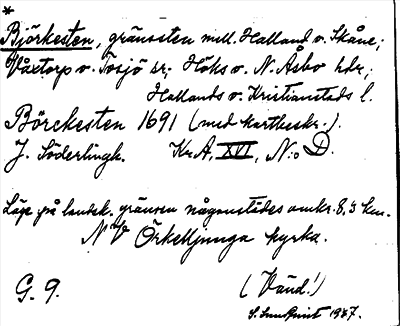 *
Björkesten, gränssten mell. Halland o. Skåne;
Våxtorp o. Tåsjö sr; Höks o. N. Åsbo hdr;
Hallands o. Kristianstads l.
Börckesten 1691 (med kartbeskr.).
J. Söderlingk. Kr.A, XVI, N:o D.
Läge på landsk. gränsen någonstädes omkr. 8,5 km.
NV Örkelljunga kyrka.
G. 9.
(Vänd!)
S. Lundquist 1937.